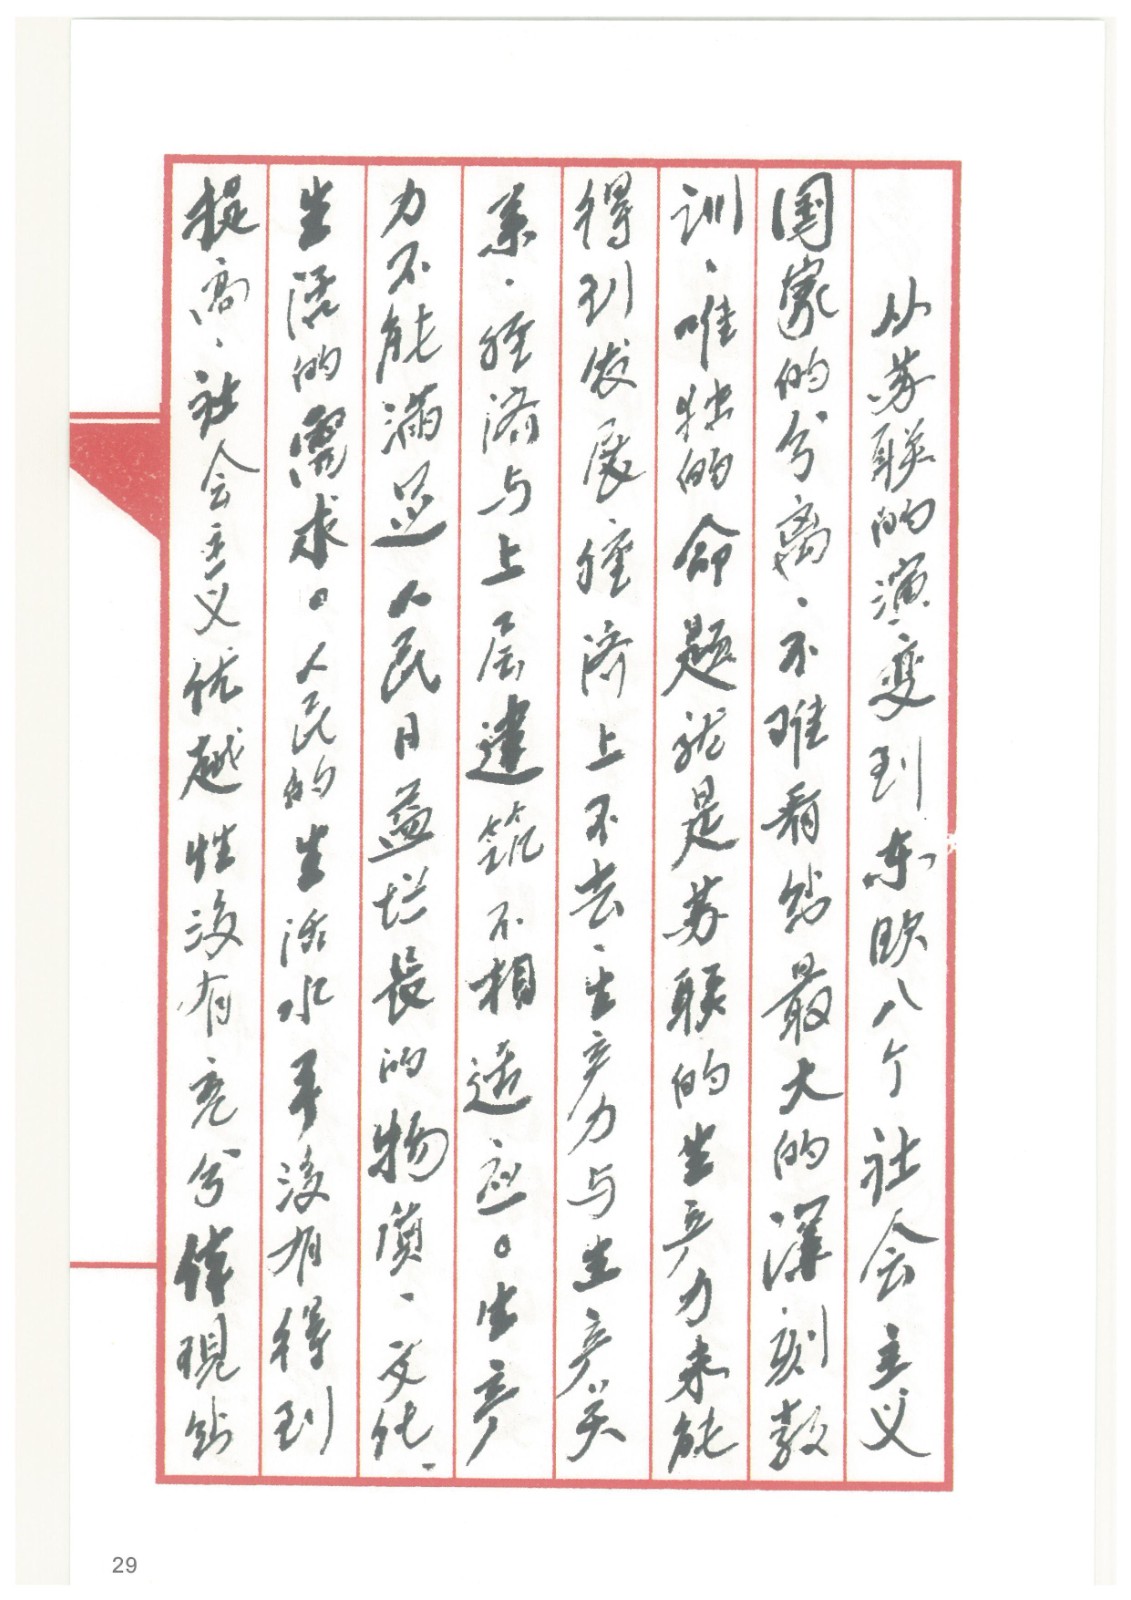 从苏联的演变到东欧八个社会主义
国家的分离、不难看出最大的深刻教
训、唯独的命题就是苏联的生产力未能
得到发展经济上不去、生产力与生产关
系、经济与上层建筑不相适应。生产
力不能满足人民日益增长的物质、文化、
生活的需求。人民的生活水平没有得到
提高、社会主义优越性没有充分体现出
29